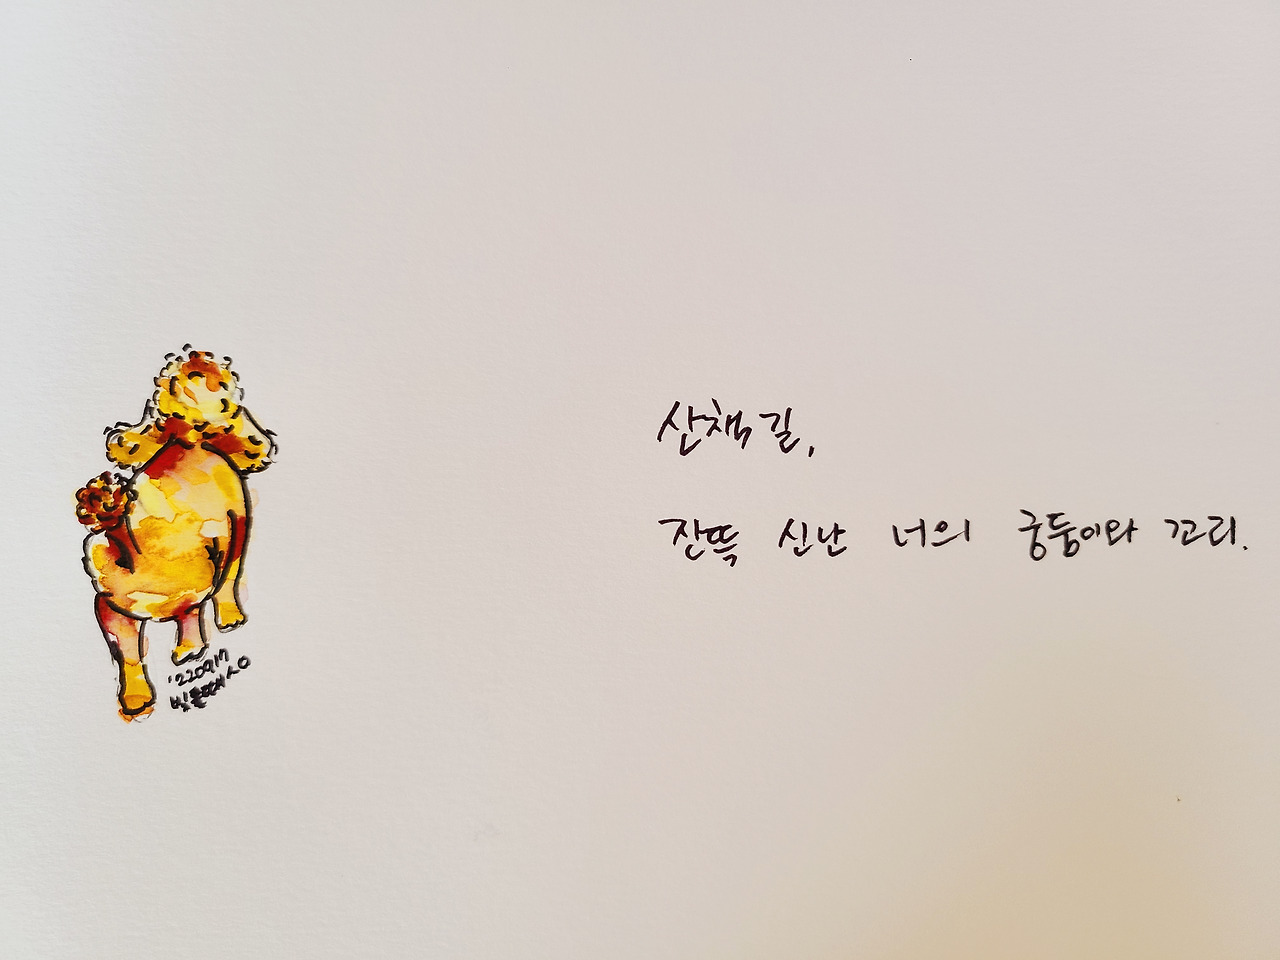 산책길,
잔뜩 신난 너의 궁둥이와 꼬리.
'220917